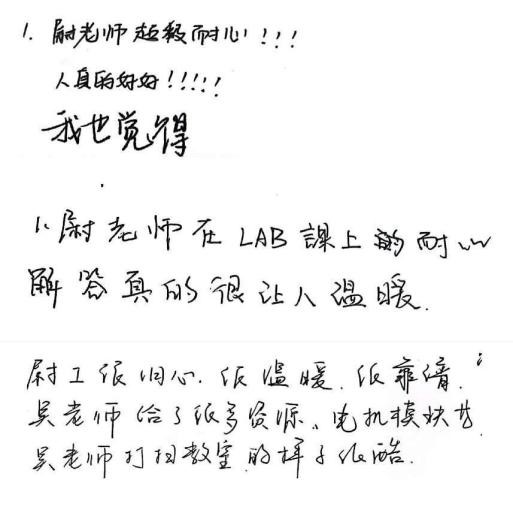 1. 尉老师超级耐心!!!
人真的好好!!!!!
我也觉得
1. 尉老师在LAB課上的耐心
解答真的很让人温暖.
尉工很细心.很温暖.很靠谱.
吴老师给了很多资源、电机模块等
吴老师打扫教室的样子很酷.